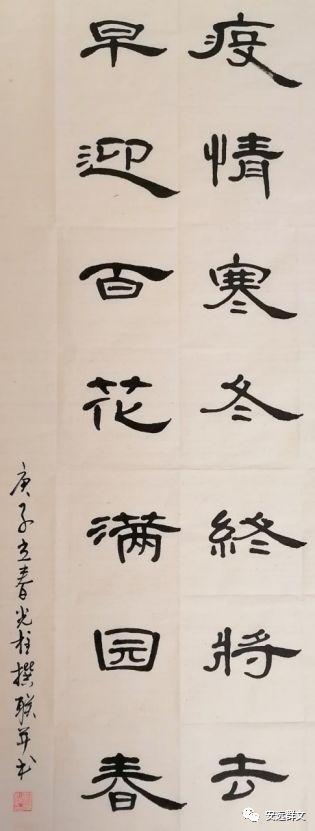 疫情寒冬终將去
早迎百花满园春
庚子立春光柱撰联并书
安远群文